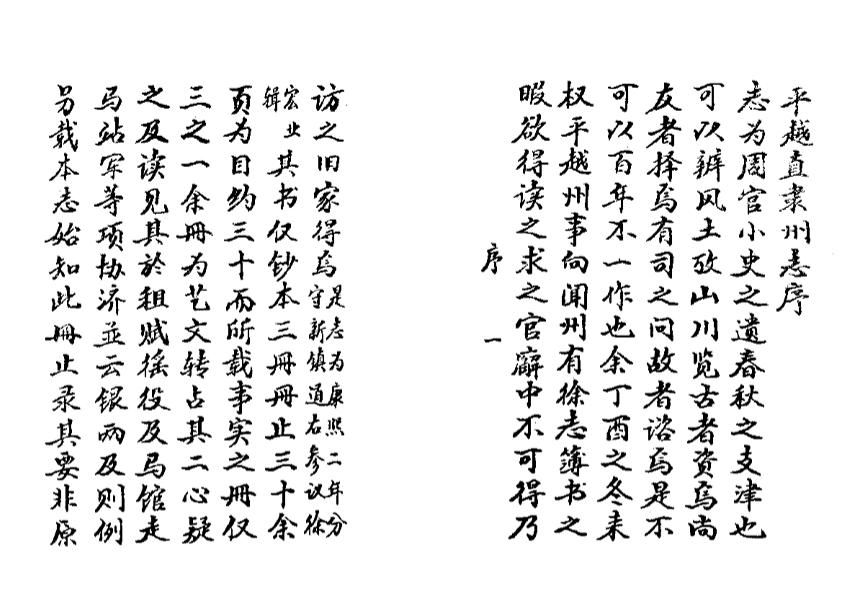 平越直隶州志序
志为周官小史之遗春秋之支津也
可以辨风土攷山川览古者资焉尚
友者择焉有司之问故者谘焉是不
可以百年不一作也余丁酉之冬来
权平越州事向闻州有徐志簿书之
暇欲得读之求之官廨中不可得乃
序 一
访之旧家得焉是志为康熙二年分守新镇道右参议徐宏业辑
其书仅钞本三册册止三十余
页为目约三十而所载事实之册仅
三之一余册为艺文转占其二心疑
之及读见其於租赋徭役及马馆走
马站军等项协济並云银两及则例
另载本志始知此册止录其要非原